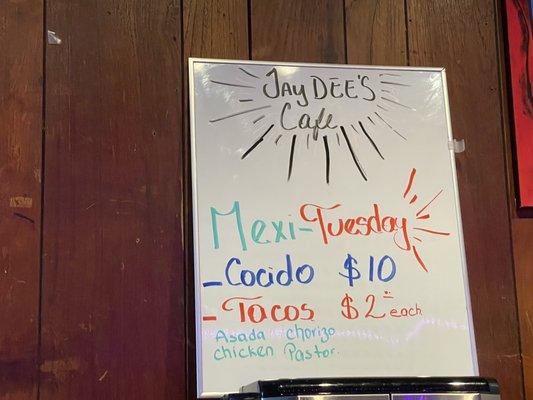 JAY DEE'S
Cafe
Mexi-Tuesday
-Cocido $10
-Tacos $2= each
Asada Chorizo
chicken Pastor.